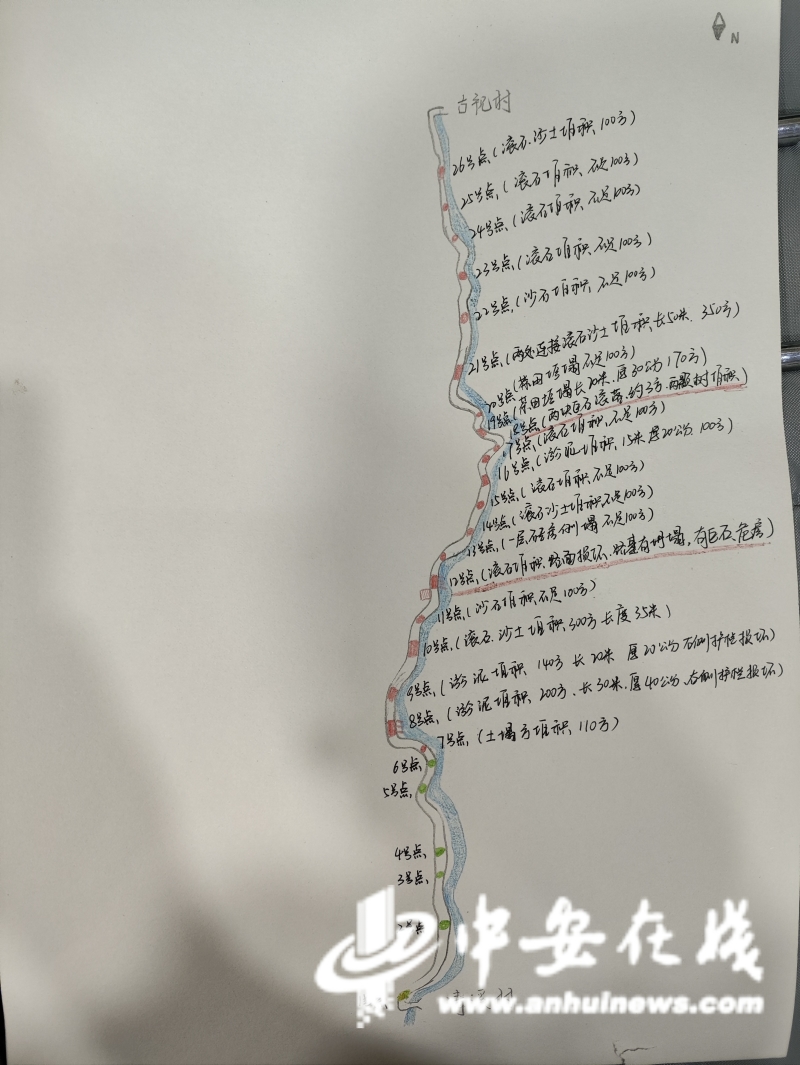 N
古祝村
26号点(滚石.沙土堆积 100方)
25号点(滚石堆积 不足100方)
24号点(滚石堆积 不足100方)
23号点(滚石堆积 不足100方)
22号点(沙石堆积 不足100方)
21号点(两处连接滚石沙土堆积 长50米. 350方)
20号点 田埂塌 不足100方)
19号点(茶田埂塌长20米. 厚30公分 170方)
18号点(两块巨石滚落. 约3方. 两颗树堆积)
17号点(滚石堆积 不足100方)
16号点(淤泥堆积. 15米厚20公分. 100方)
15号点(滚石堆积 不足100方)
14号点(滚石沙土堆积 不足100方)
13号点(一层砖房侧塌 不足100方)
12号点(滚石堆积. 路面损坏. 路基有坍塌. 有巨石. 危房)
11号点(沙石堆积 不足100方)
10号点(滚石. 沙土堆积 300方 长度35米)
9号点(淤泥堆积 140方 长20米 厚20公分 右侧护栏损坏)
8号点(淤泥堆积 200方. 长30米. 厚40公分. 右侧护栏损坏)
7号点(土塌方堆积 110方)
6号点
5号点
4号点
3号点
号点
村
中安在线
www.anhuinews.com